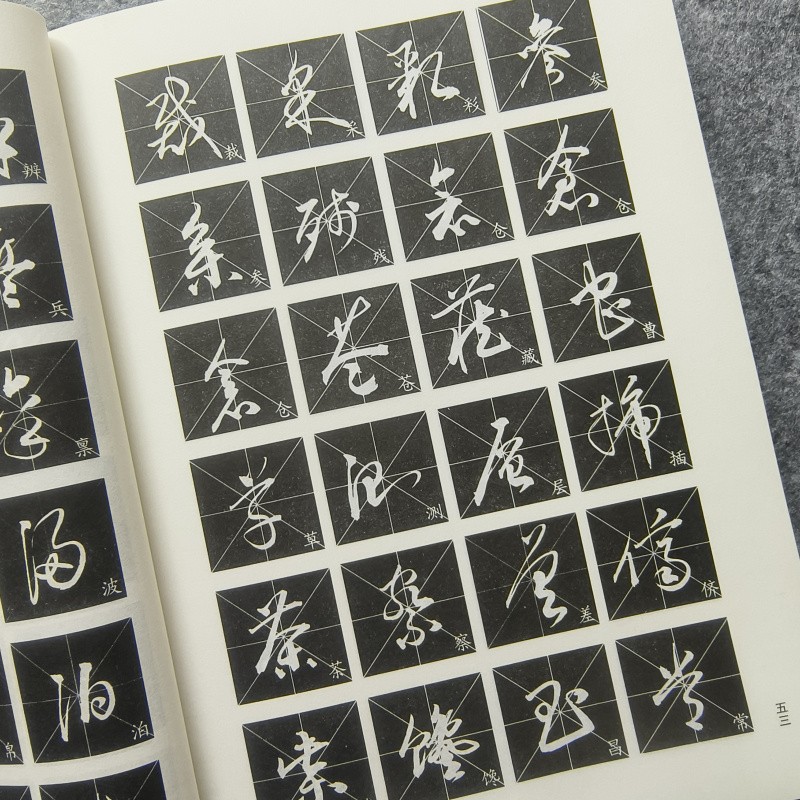 辨
兵
禀
波
泊
帛
裁 采 彩 参
参 残 仓 仓
仓 苍 藏 曹
草 测 层 插
茶 察 差 侪
馋 昌 常
五三